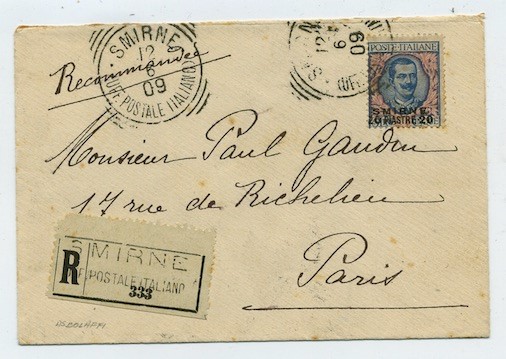 SMIRNE
12
6
09
(UFF. POSTALE ITALIANO)
Recommandée
12
6
09
POSTE ITALIANE
SMIRNE
20 PIASTRE 20
Monsieur Paul Gaudin
17 rue de Richelieu
Paris
R
SMIRNE
POSTALE ITALIANO
333